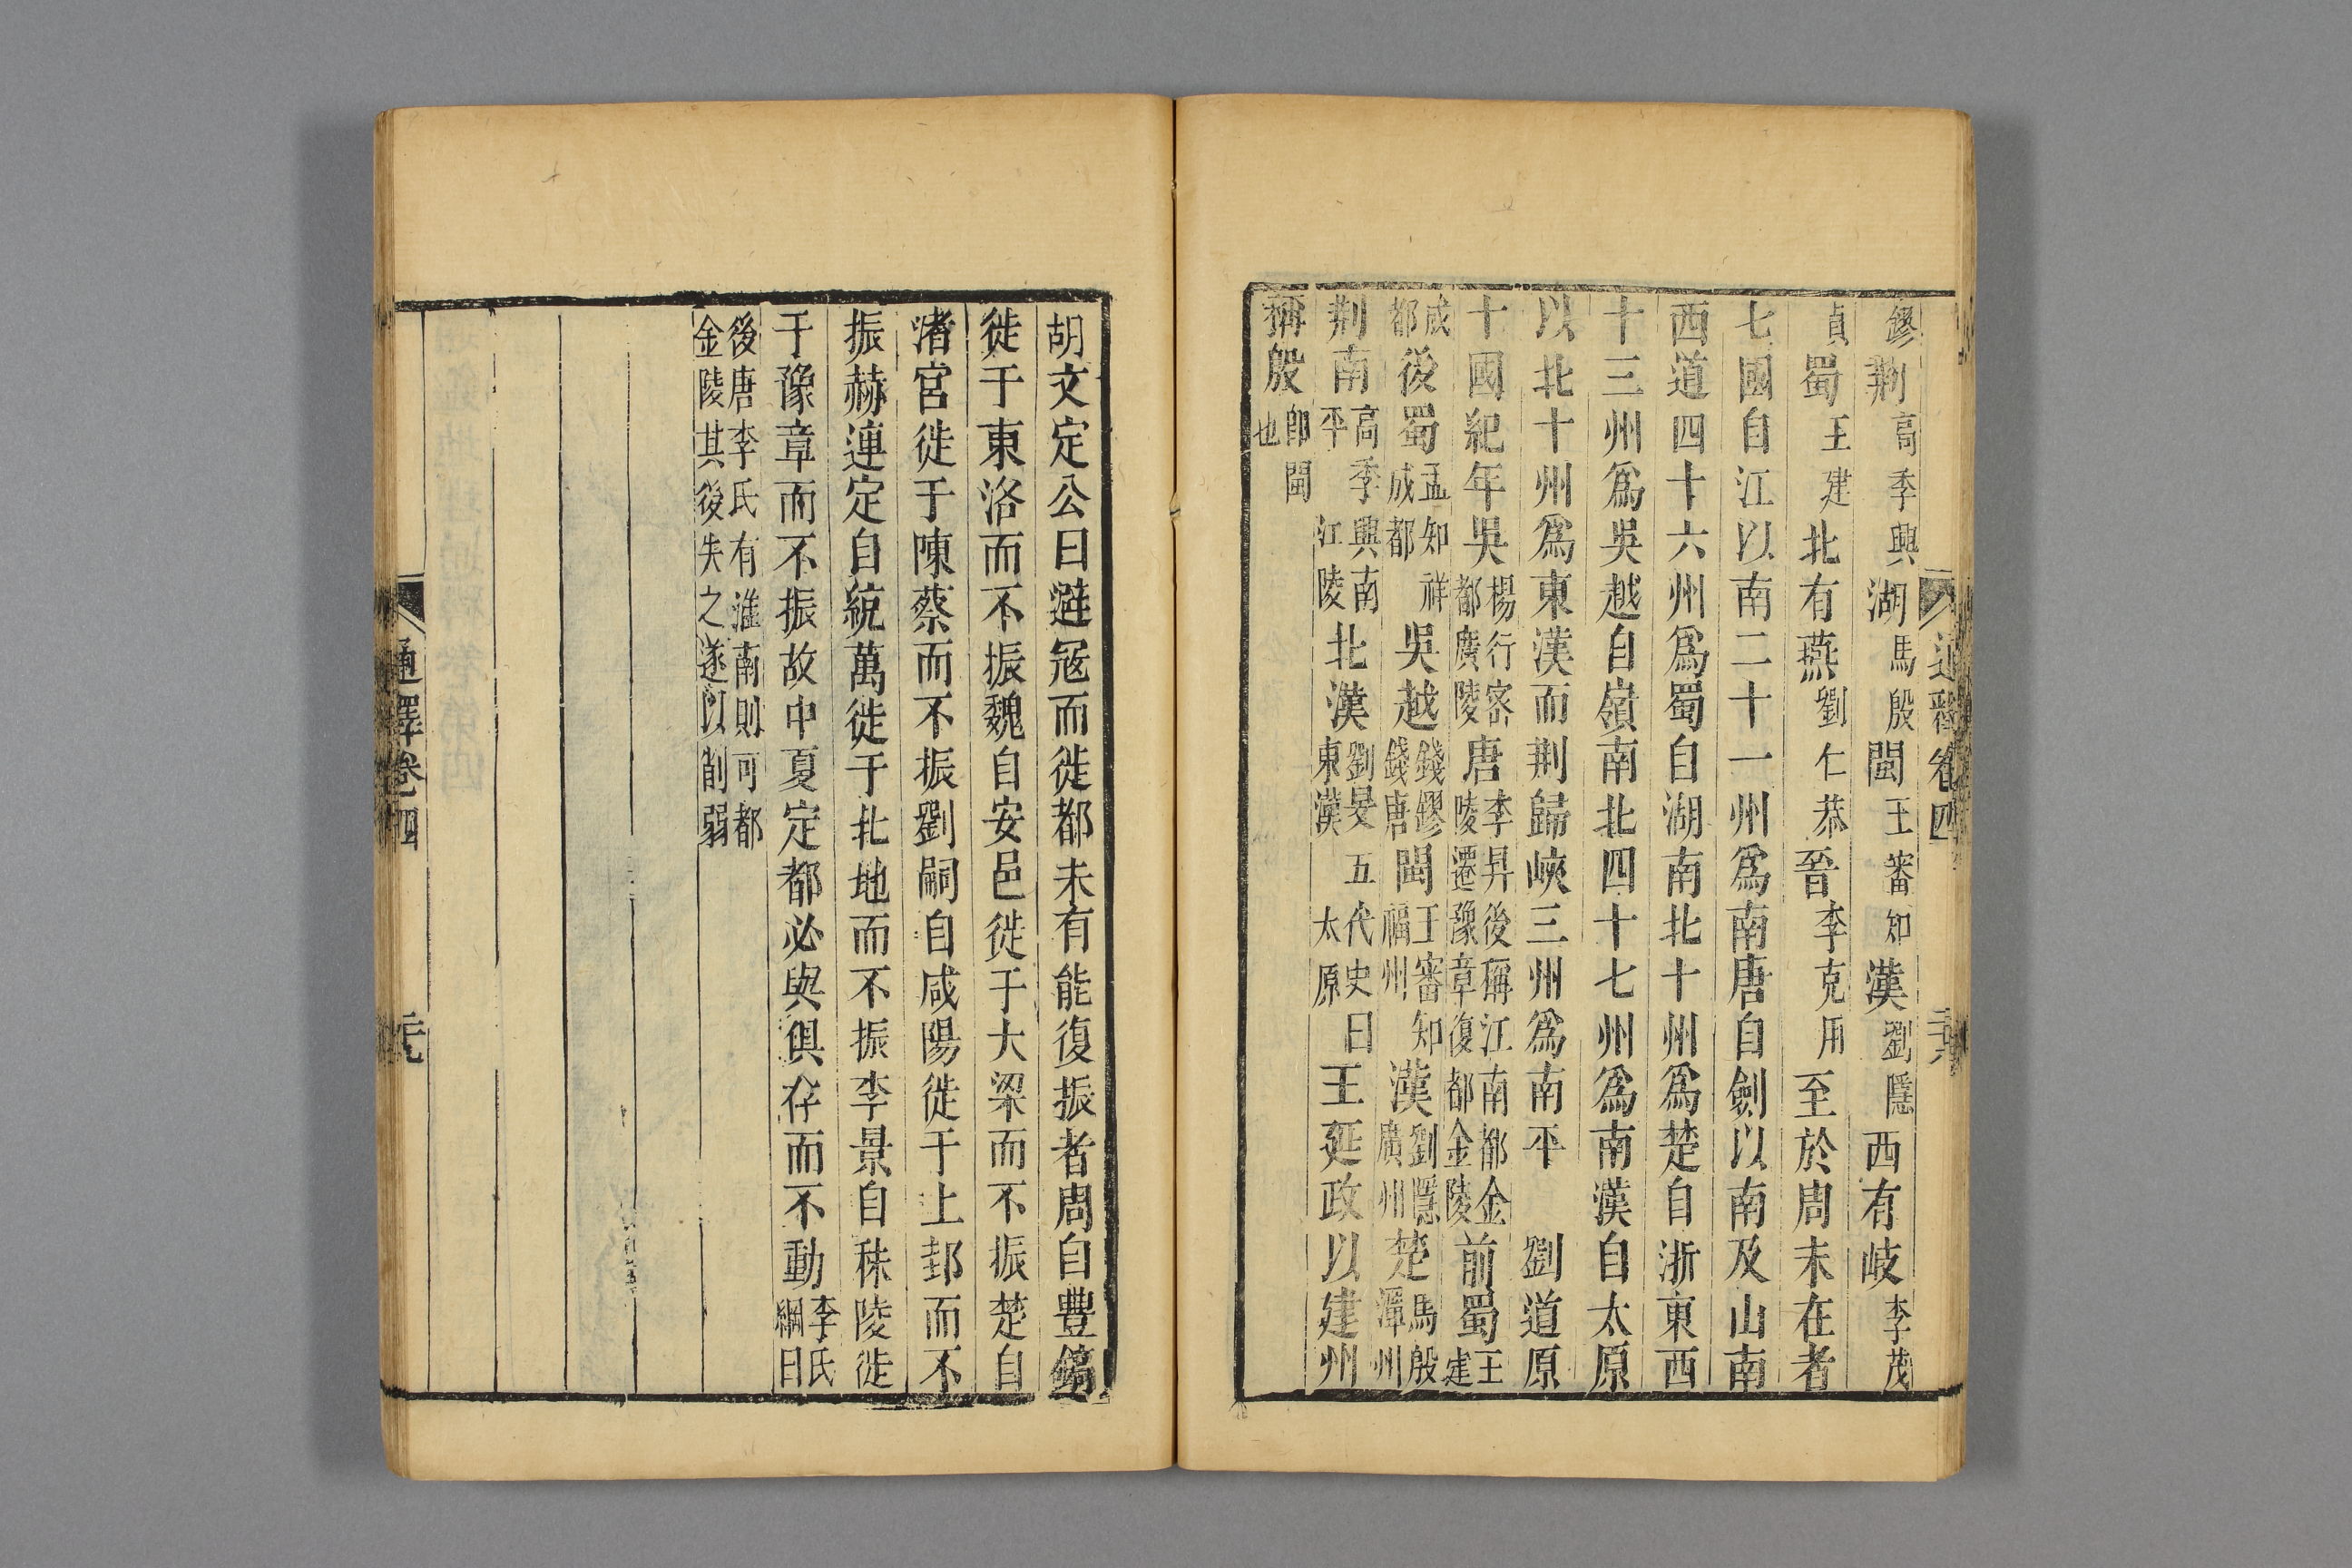 通釋卷四
鏐荆高季興湖馬殷閩王審知漢劉隱西有岐李茂
貞蜀王建北有燕劉仁恭晉李克用至於周末在者
七國自江以南二十一州爲南唐自劍以南及山南
西道四十六州爲蜀自湖南北十州爲楚自浙東西
十三州爲吳越自嶺南北四十七州爲南漢自太原
以北十州爲東漢而荆歸峽三州爲南平　劉道原
十國紀年吳楊行密都廣陵唐李昇後稱江南都金陵遷豫章復都金陵前蜀王建
成都後蜀孟知祥成都吳越錢鏐錢唐閩王審知福州漢劉隱廣州楚馬殷潭州
荆南高季興南平江陵北漢劉旻五代史曰東漢太原王延政以建州
稱殷卽閩也
胡文定公曰遊冦而徙都未有能復振者周自豐鎬
徙于東洛而不振魏自安邑徙于大梁而不振楚自
渚宮徙于陳蔡而不振劉嗣自咸陽徙于上邽而不
振赫連定自統萬徙于北地而不振李景自秣陵徙
于豫章而不振故中夏定都必與俱存而不動李氏綱曰
後唐李氏有淮南則可都金陵其後失之遂以削弱
通釋卷四